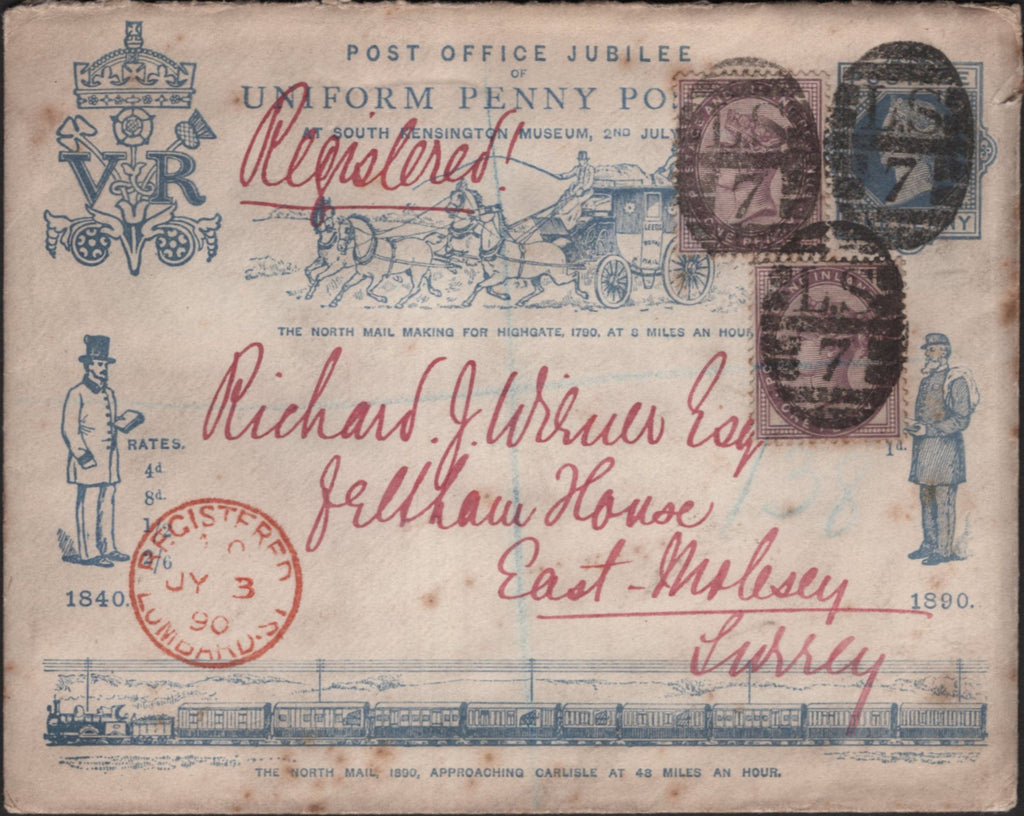 POST OFFICE JUBILEE
OF
UNIFORM PENNY PO
AT SOUTH KENSINGTON MUSEUM, 2ND JULY
Registered!
V R
L.S
7
L.S
7
L.S
7
LEEDS
MAIL
THE NORTH MAIL MAKING FOR HIGHGATE, 1790. AT 8 MILES AN HOUR
Richard. J. Wilmer Esq
Feltham House
East-Molesey
Surrey
138
RATES.
4d.
8d.
1d.
REGISTERED
JY 3
90
LOMBARD.ST
1840.
1890.
THE NORTH MAIL, 1890, APPROACHING CARLISLE AT 48 MILES AN HOUR.